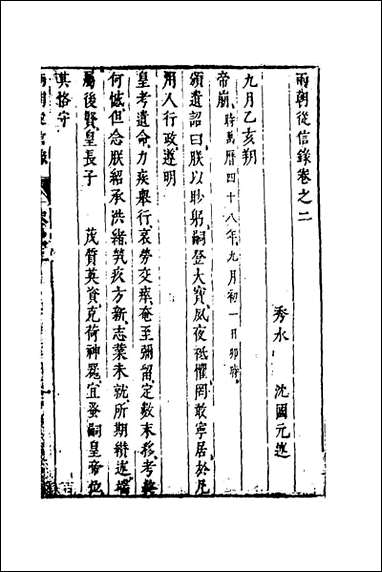 兩朝從信錄卷之二
秀水 沈國元述
九月乙亥朔
帝崩時萬曆四十八年九月初一日卯時
頒遺詔曰朕以眇躬嗣登大寶夙夜祗懼罔敢寧居於凡
用人行政遵明
皇考遺命力疾舉行哀勞交瘁奄至彌留定數末移考終
何憾但念朕紹承洪緒筑疚方新志業未就所期纘述端
屬後賢皇長子 茂質英資克荷神器宜蚤嗣皇帝位
其恪守